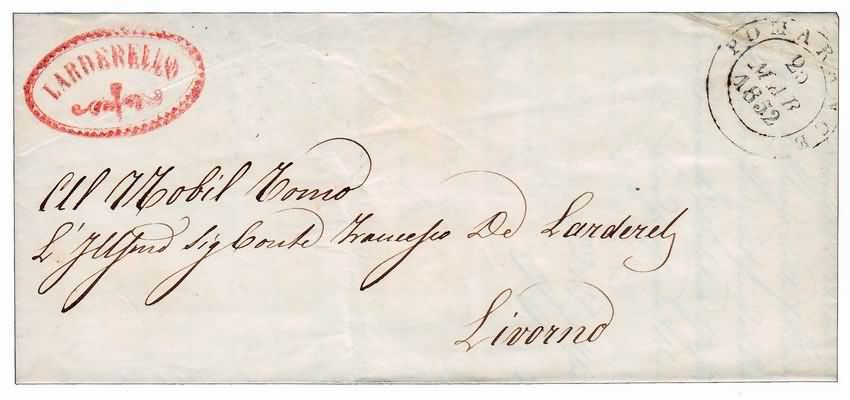 LARDERELLO
POMARANCE
23
MAR
1852
Al Nobil Uomo
L'Illmo Sig Conte Francesco De Larderel
Livorno